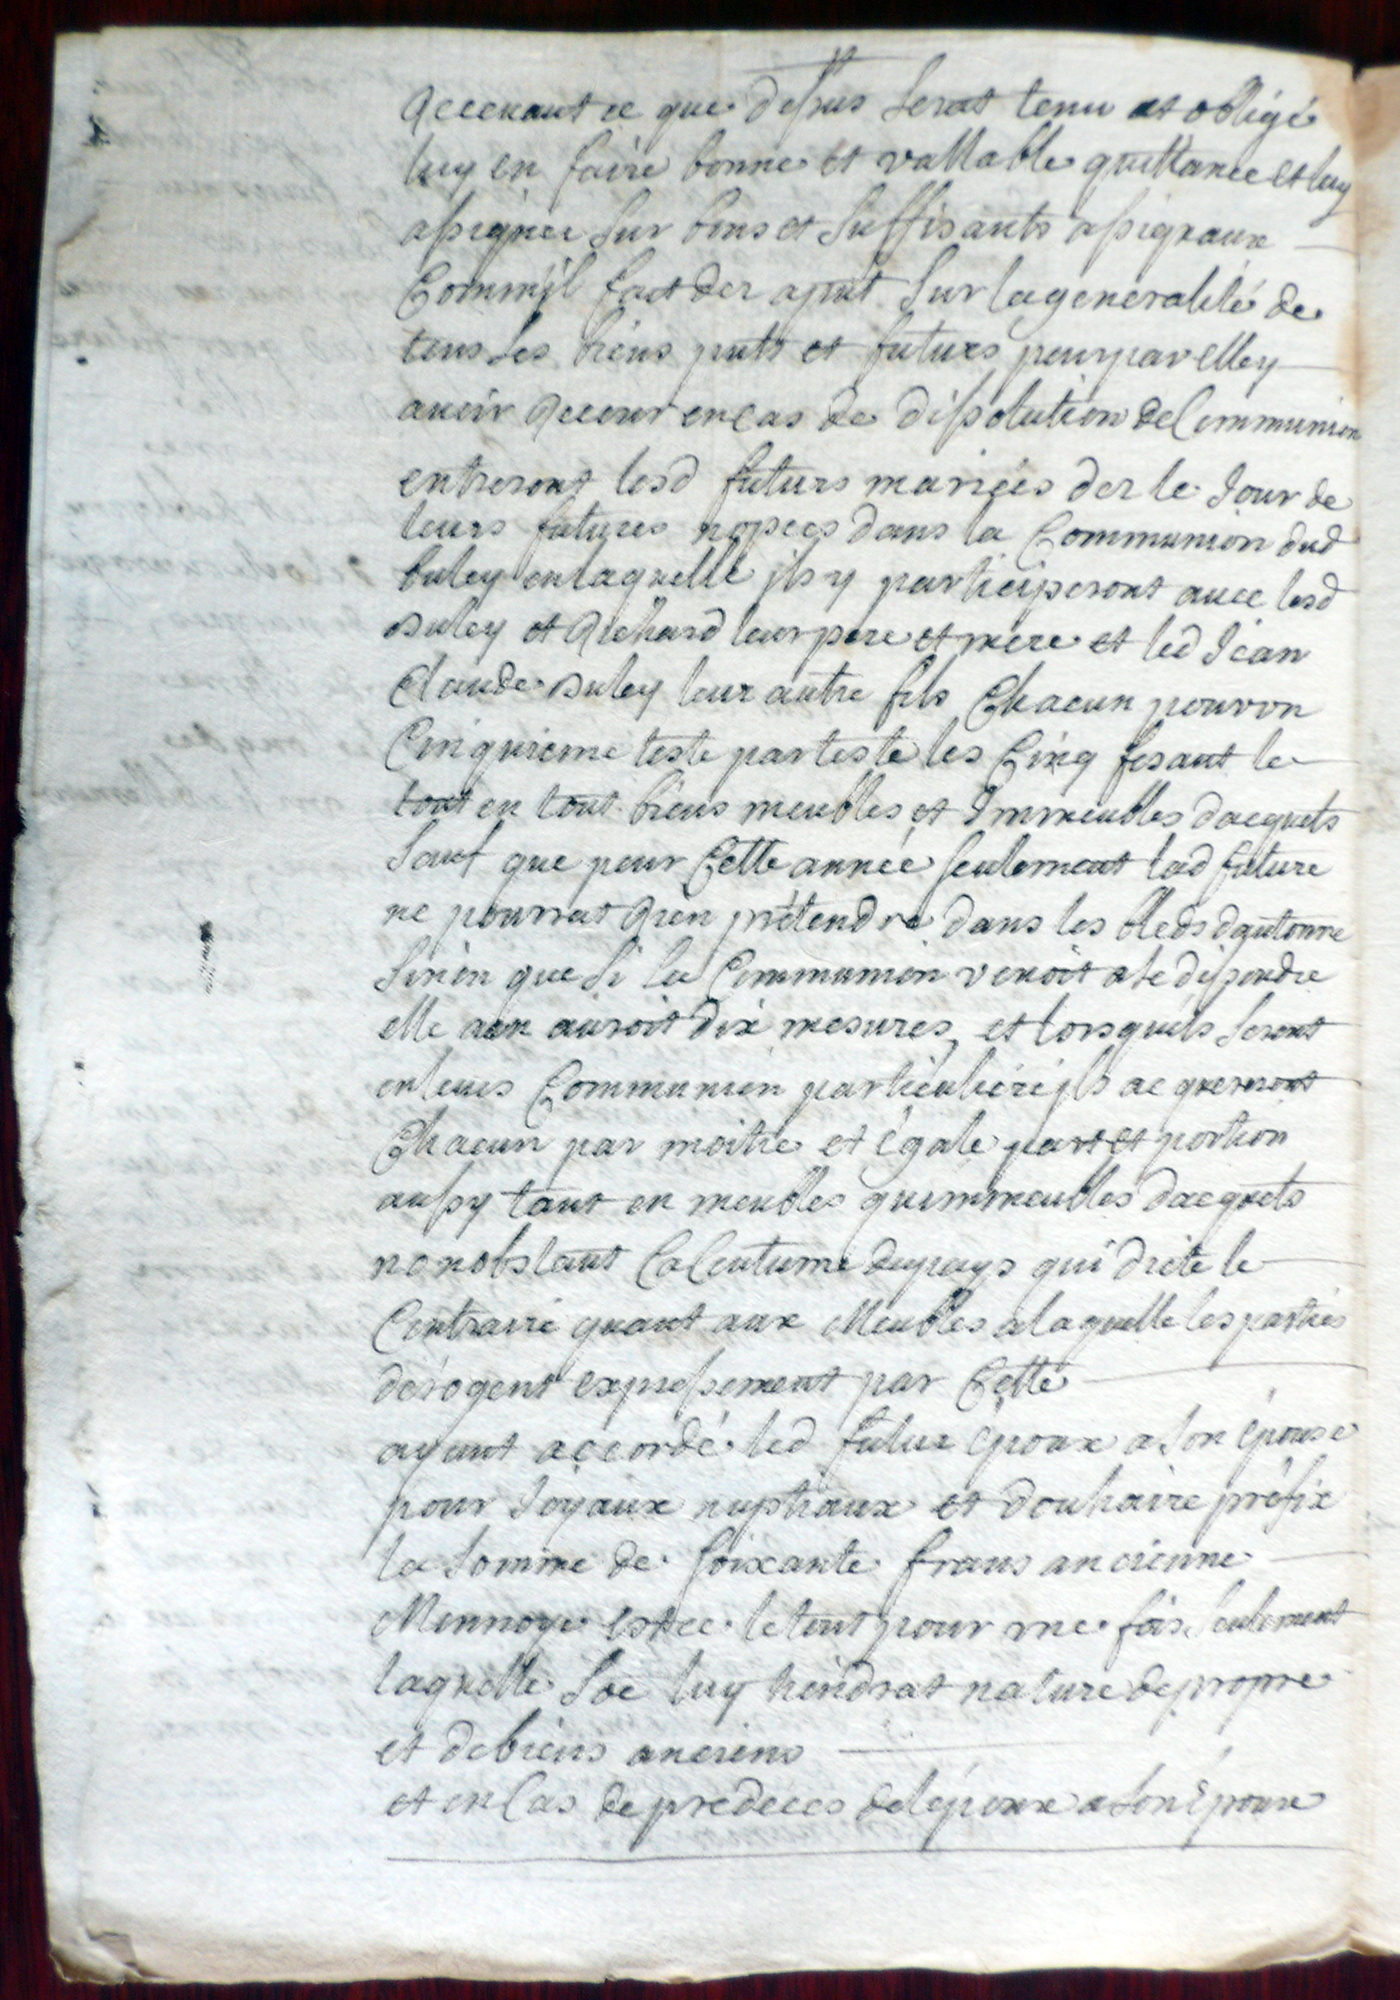 Recevant ce que dessus serat tenu et obligé
luy en faire bonne et vallable quittance et luy
assigner sur bons et suffisants assignaux
Comm'jl fait der apnt sur la generalité de
tous ses biens pnts et futurs pour par elle y
auoir Recour en cas de dissolution de Communion
entreront lesd futurs mariées der le Jour de
leurs futures nopces dans la Communion dud
buley en laquelle jls y participeront auec lesd
buley et Richard leur pere et mere et led Jean
Claude buley leur autre fils Chacun pour vn
Cinquieme teste par teste les Cinq fesant le
tout en tout biens meubles et Immeubles dacquets
sauf que pour Cette année seulement lad future
ne pourrat Rien prétendre dans les bleds dautonne
sinon que si la Communion venoit a se dissoudre
elle en auroit dix mesures, et lorsquils seront
en leurs Communion particuliére jls acquerront
Chacun par moitie et égale part et portion
aussy tant en meubles quimmeubles dacquets
nonobstant la Coutume du pays qui dicte le
Contraire quant aux Meubles a laquelle les parties
dérogent expressement par Cette
ayant accordé led futur époux a son épouse
pour Joyaux nuptiaux et douhaire préfix
la somme de soixante frans ancienne
Monnoye le tout pour vne fois seulement
laquelle soe luy tiendrat nature de propre
et de biens anciens
et en Cas de predeces de lépoux a son Epouse